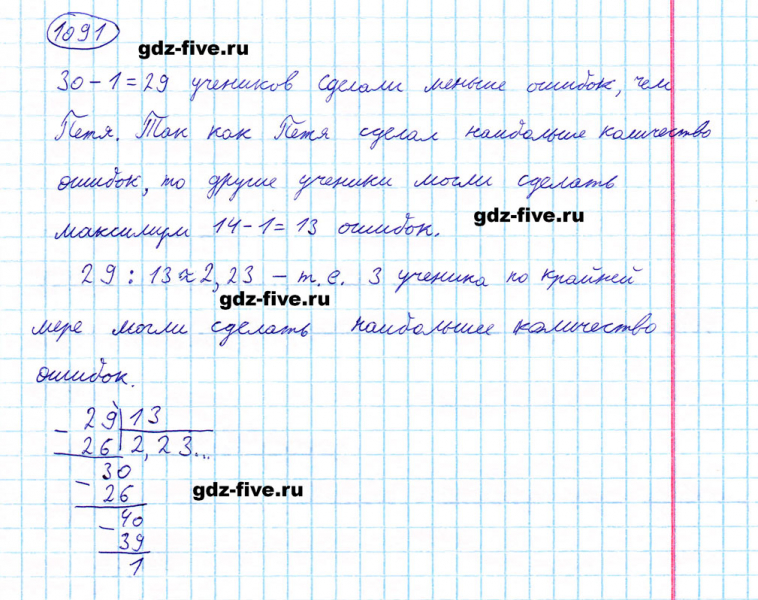 1091
gdz-five.ru
30 - 1 = 29 учеников сделали меньше ошибок, чем
Петя. Так как Петя сделал наибольшее количество
ошибок, то другие ученики могли сделать
gdz-five.ru
максимум 14 - 1 = 13 ошибок.
29 : 13 ≈ 2,23 – т.е. 3 ученика по крайней
gdz-five.ru
мере могли сделать наибольшее количество
ошибок.
- 29 | 13
26 | 2,23...
- 30
26
gdz-five.ru
- 40
39
1